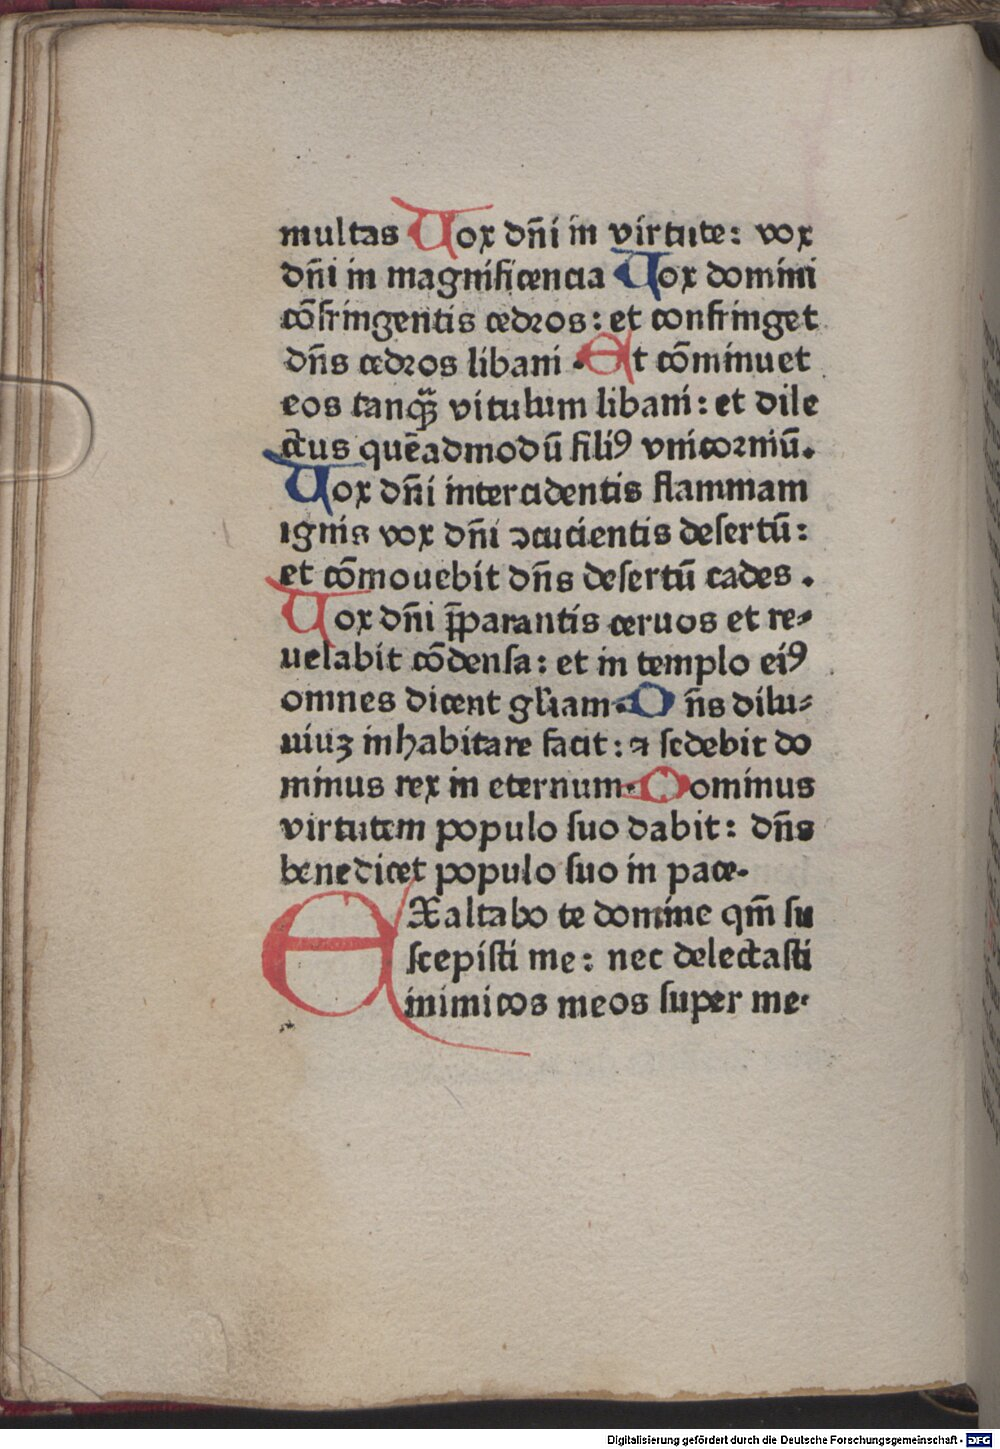 multas Vox dn̄i in virtute: vox
dn̄i in magnificencia Vox domini
cōfringentis cedros: et confringet
dn̄s cedros libani. Et cōminuet
eos tanqꝫ vitulum libani: et dile
ctus quēadmodū filiꝰ vnicorniū.
Vox dn̄i intercidentis flammam
ignis vox dn̄i ↄcucientis desertū:
et cōmouebit dn̄s desertū cades.
Vox dn̄i p̄parantis ceruos et re⸗
uelabit cōdensa: et in templo eiꝰ
omnes dicent gl̄iam. Dn̄s dilu⸗
uiuꝫ inhabitare facit: ⁊ sedebit do
minus rex in eternum. Dominus
virtutem populo suo dabit: dn̄s
benedicet populo suo in pace.
EXaltabo te domine qm̄ su
scepisti me: nec delectasti
inimicos meos super me.
Digitalisierung gefördert durch die Deutsche Forschungsgemeinschaft - DFG